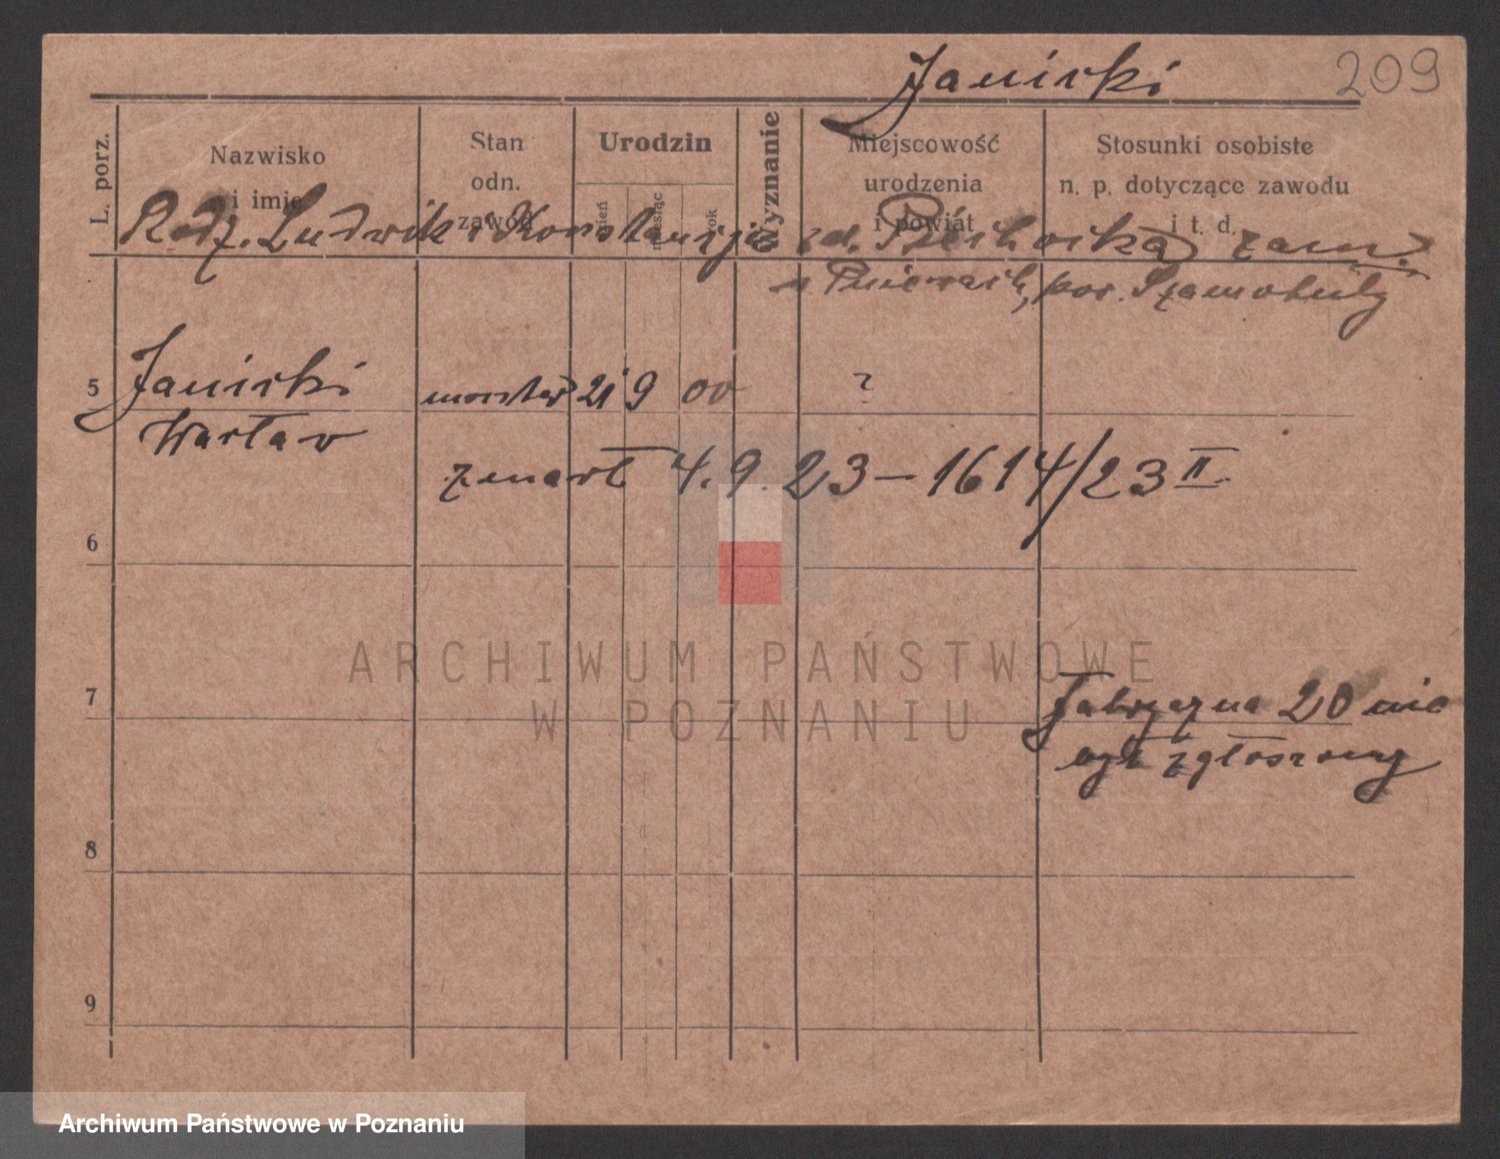 Janicki
209
L. porz.
Nazwisko i imię
Stan odn. zawód
Urodzin
dzień
miesiąc
rok
Wyznanie
Miejscowość urodzenia i powiat
Stosunki osobiste n. p. dotyczące zawodu i t. d.
Rodz. Ludwik i Konstancja zd. Piechocka zam.
w Pniewach, pow. Szamotuły
5 Janicki 21 9 00 ?
Wacław
zmarł 4.9.23 – 1614/23 II
6
ARCHIWUM PAŃSTWOWE
W POZNANIU
7 Fabryczna 20 nie
był zgłoszony
8
9
Archiwum Państwowe w Poznaniu